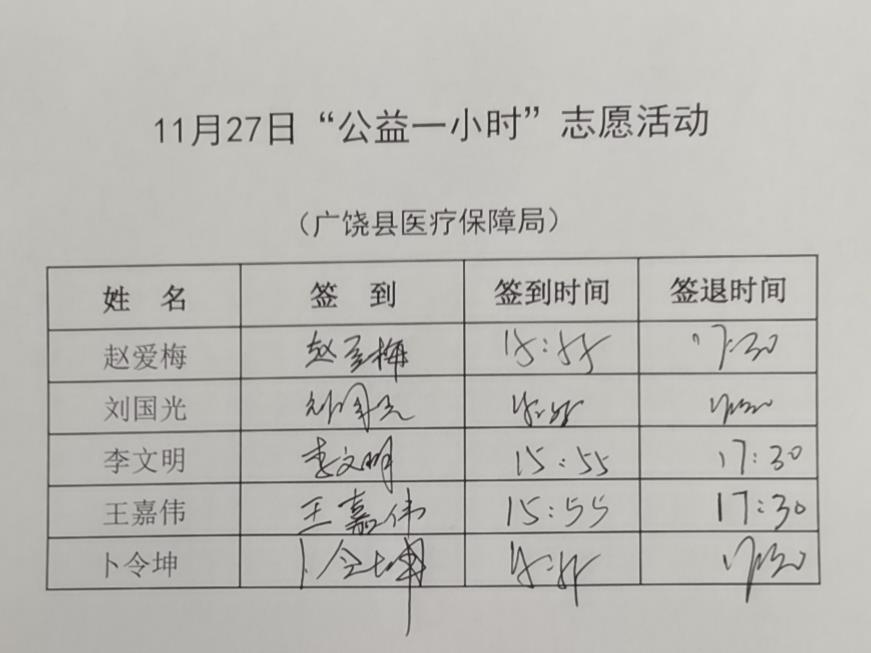 11月27日“公益一小时”志愿活动
（广饶县医疗保障局）
姓 名 签 到 签到时间 签退时间
赵爱梅 赵爱梅 15:55 17:30
刘国光 刘国光 15:55 17:30
李文明 李文明 15:55 17:30
王嘉伟 王嘉伟 15:55 17:30
卜令坤 卜令坤 15:55 17:30